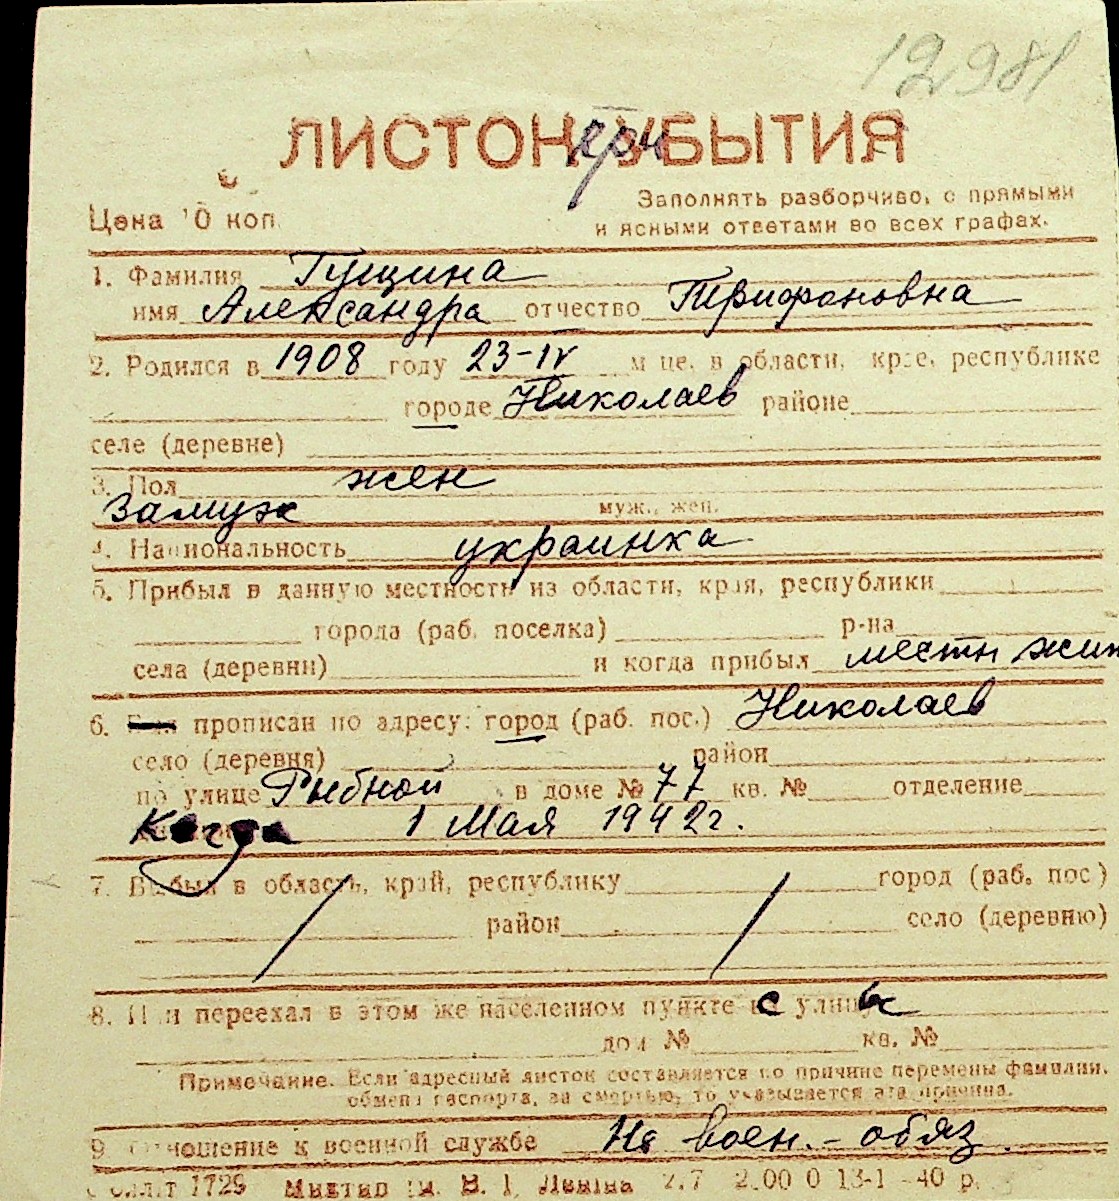 12981
ЛИСТОК при УБЫТИЯ
Цена 10 коп.
Заполнять разборчиво, с прямыми
и ясными ответами во всех графах.
1. Фамилия Гущина
имя Александра отчество Трифоновна
2. Родился в 1908 году 23-IV м-це, в области, крае, республике
городе Николаев районе
селе (деревне)
3. Пол жен
замуж муж., жен.
4. Национальность украинка
5. Прибыл в данную местность из области, края, республики
города (раб. поселка) р-на
села (деревни) и когда прибыл местн жит
6. прописан по адресу: город (раб. пос.) Николаев
село (деревня) район
по улице Рыбной в доме № 77 кв. № отделение
Когда 1 Мая 1942г.
7. Выбыл в область, край, республику город (раб. пос)
район село (деревню)
8. Или переехал в этом же населенном пункте с улицы
дом № кв. №
Примечание. Если адресный листок составляется по причине перемены фамилии,
обмена паспорта, за смертью, то указывается эта причина.
9. Отношение к военной службе Не воен.-обяз.
1729 Ленина 2.00 0 13-1-40 р.